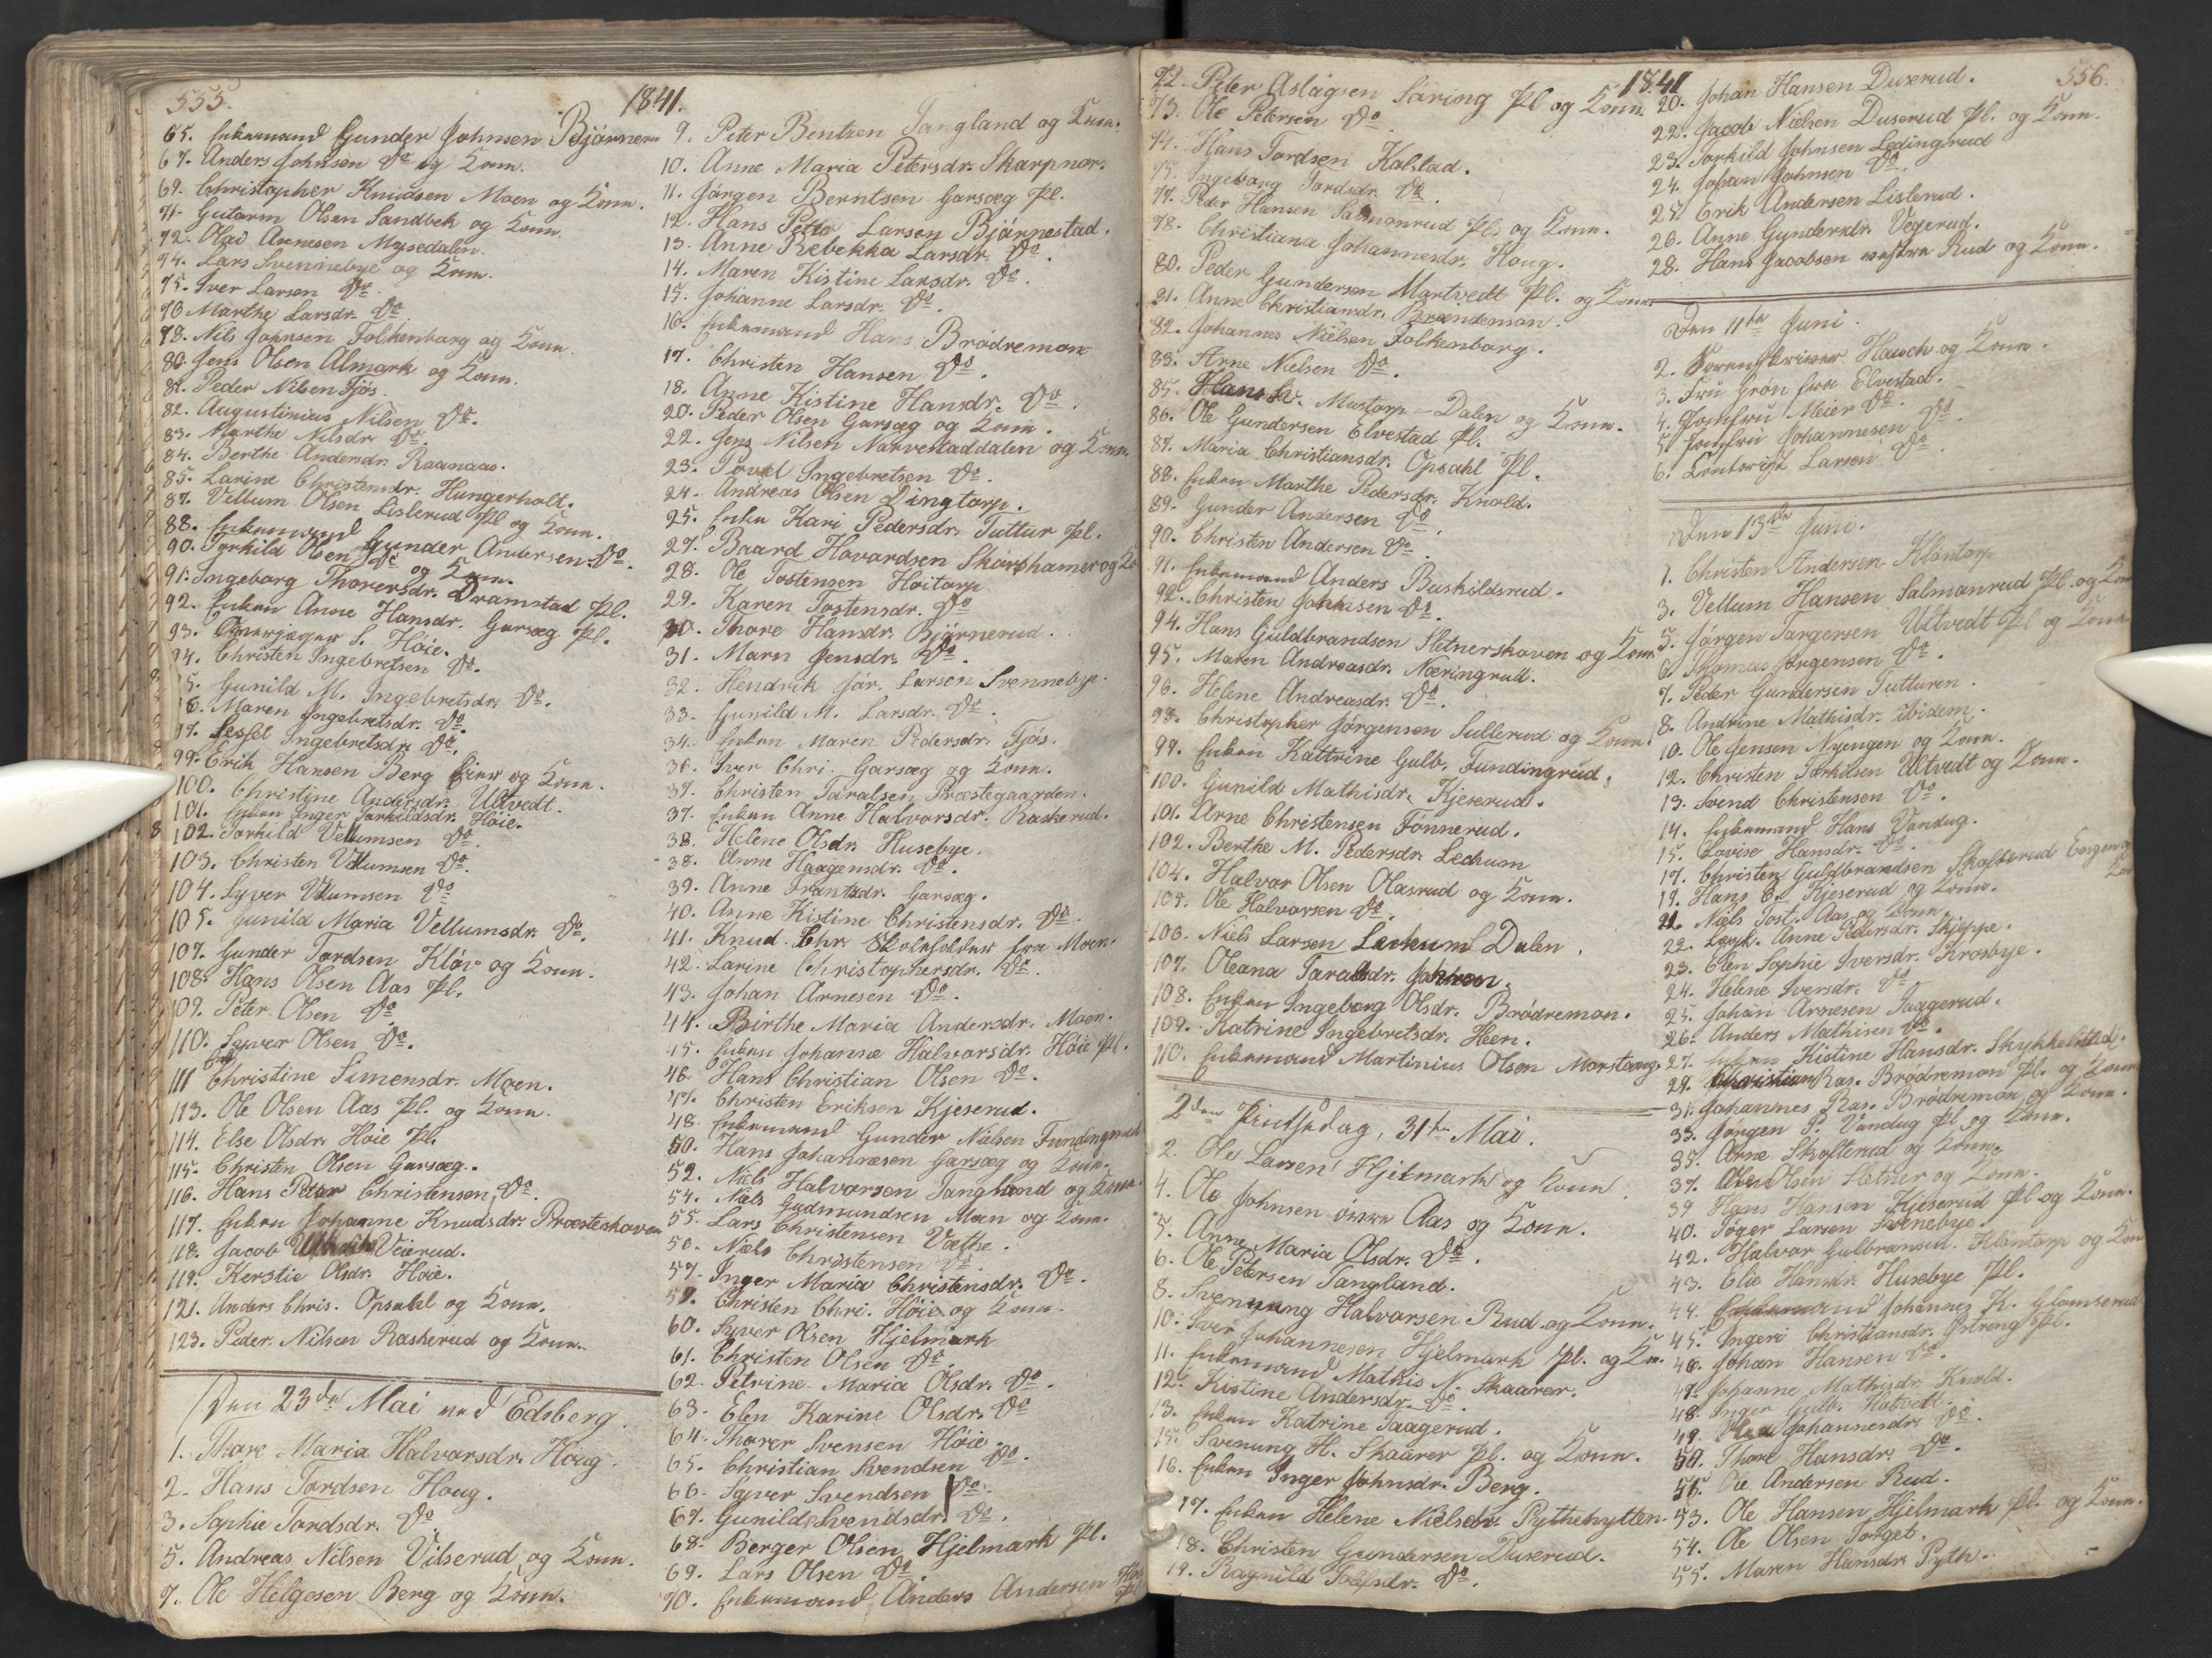 555.
1841.
65. Enkemand Gunder Johnsen Bejørneru
67. Anders Johnsen Do og Konn.
69. Christopher Knudsen Moen og Konn.
71. Gutorm Olsen Sandbek og Konn.
72. Olai Arnesen Mysedalen.
74. Lars Svennebye og Konn.
75. Iver Larsen Do
76 Marthe Larsdr. Do
78. Nils Johnsen Folkenborg og Konn.
80. Jens Olsen Almark og Konn.
81. Peder Nilsen Fjøs
82. Augustinius Nilsen Do.
83. Marthe Nilsdr Do.
84. Berthe Andersdr. Raanaas.
85. Larine Christensdr. Hungerholt.
87. Vellum Olsen Lislerud Pl og Konn.
88. Enkemand Gunder Andersen Do.
90. Torkild Olsen Do og Konn.
91. Ingeborg Thorersdr. Dramstad Pl.
92. Enken Anne Hansdr. Garsæg Pl.
93. S. Høie.
94. Christen Ingebretsen Do.
95. Gunild M. Ingebretsdr. Do.
96. Maren Ingebretsdr. Do.
97. Sessel Ingebretsdr. Do.
99. Erik Hansen Berg Eier og Konn.
100. Christine Andersdr. Ultvedt.
101. Enken Inger Torkildsdr. Høie.
102. Torkild Vellumsen Do.
103. Christen Vellumsen Do.
104. Syver Vellumsen Do
105. Gunild Maria Vellumsdr. Do.
107. Gunder Tordsen Kløv og Konn.
108. Hans Olsen Aas Pl.
109. Peter Olsen Do
110. Syver Olsen Do.
111 Christine Simensdr. Moen.
113. Ole Olsen Aas Pl. og Konn.
114. Else Olsdr. Høie Pl.
115. Christen Olsen Garsæg.
116. Hans Peter Christensen Do.
117. Enken Johanne Knudsdr. Præsteskoven
118. Jacob Veierud.
119. Kerstie Olsdr. Høie.
121. Anders Chris. Opsahl og Konn.
123. Peder Nilsen Raskerud og Konn.
Den 23de Mai ved Edsberg.
1. Thore Maria Halvorsdr. Houg.
2. Hans Tordsen Houg.
3. Sophie Tordsdr. Do
5. Andreas Nilsen Vilserud og Konn.
7. Ole Helgesen Berg og Konn.
9. Peter Bentzen Tangland og Konn.
10. Anne Maria Petersdr. Skarpnor.
11. Jørgen Berntsen Garsæg Pl.
12. Hans Petter Larsen Bjørnestad.
13. Anne Rebekka Larsdr. Do.
14. Maren Kistine Larsdr. Do.
15. Johanne Larsdr. Do.
16. Enkemand Hans Brødremon
17. Christen Hansen Do.
18. Anne Kistine Hansdr. Do.
20. Peder Olsen Garsæg og Konn.
22. Jens Nilsen Narvestaddalen og Konn.
23. Povel Ingebretsen Do.
24. Andreas Olsen Dingtorp.
25. Enke Kari Pedersdr. Tuttur Pl.
27. Baard Havardsen Skørshamer og Ko
28. Ole Tostensen Høitorp
29. Karen Tostensdr. Do
30. Thore Hansdr. Bjørnerud.
31. Marn Jensdr. Do.
32. Hendrik Jør. Larsen Svennebye.
33. Gunild M. Larsdr. Do.
34. Enken Maren Pedersdr. Fjøs.
36. Iver Chri. Garsæg og Konn.
37. Christen Taralsen Præstegaarden.
37. Enken Anne Halvorsdr. Raskerud.
38. Helene Olsdr. Husebye.
38. Anne Haagensdr. Do.
39. Anne Frantzdr. Garsæg.
40. Anne Kistine Christensdr. Do.
41. Knud Chr. Skoleholder fra Moen.
42. Larine Christophersdr. Do.
43. Johan Arnesen Do.
44. Birthe Maria Andersdr. Moen.
45. Enken Johanne Halvorsdr. Høie Pl.
46. Hans Christian Olsen Do.
47. Christen Eriksen Kjeserud.
48. Enkemand Gunder Nielsen Fundingrud
50. Hans Johannesen Garsæg og Konn.
52. Niels Halvorsen Tangland og Konn.
54. Niels Gudmundsen Moen og Konn.
55. Lars Christensen Væthe.
56. Niels Christensen Do
57. Inger Maria Christensdr. Do.
59. Christen Chri. Høie og Konn.
60. Syver Olsen Hjelmark
61. Christen Olsen Do.
62. Petrine Maria Olsdr. Do.
63. Elen Karine Olsdr. Do
64. Thorer Svensen Høie
65. Christian Svendsen Do.
66. Syver Svendsen Do.
67. Gunild Svendsdr. Do.
68. Berger Olsen Hjelmark Pl.
69. Lars Olsen Do.
70. Enkemand Anders Andersen
1841
556.
72. Peter Aslagsen Søring Pl og Konn.
73. Ole Petersen Do
74. Hans Tordsen Kalstad.
75. Ingeborg Tordsdr. Do.
77. Peder Hansen Salmonrud Pl. og Konn.
78. Christiana Johannesdr. Houg.
80. Peder Gundersen Martvedt Pl. og Konn.
81. Anne Christiansdr. Brændemon.
82. Johannes Nielsen Folkenborg.
83. Arne Nielsen Do.
85. Hans Mustorp-Dalen og Konn.
86. Ole Gundersen Elvestad Pl.
87. Maria Christiansdr. Opsahl Pl.
88. Enken Marthe Pedersdr. Knold.
89. Gunder Andersen Do.
90. Christen Andersen Do.
91. Enkemand Anders Buskildsrud.
92. Christen Johnsen Do.
94. Hans Guldbrandsen Sletnerskoven og Konn
95. Maren Andreasdr. Næringrud.
96. Helene Andreasdr. Do.
98. Christopher Jørgensen Sullerud og Konn.
99. Enken Kattrine Gulb. Fundingrud.
100. Gunild Mathisdr. Kjeserud.
101. Arne Christensen Fønnerud.
102. Berthe M. Pedersdr. Lechum
104. Halvor Olsen Olasrud og Konn.
105. Ole Halvorsen Do.
106. Niels Larsen Lechum Dalen.
107. Oleana Taralsdr.
108. Enken Ingeborg Olsdr. Brødremon.
109. Katrine Ingebretsdr. Heen.
110. Enkemand Martinius Olsen Morstong.
2den Pintsedag, 31te Mai.
2. Ole Larsen Hjelmark og Konn.
4. Ole Johnsen øvre Aas og Konn.
5. Anne Maria Olsdr. Do.
6. Ole Petersen Tangland.
8. Svennung Halvorsen Rud og Konn.
10. Iver Johannesen Hjelmark Pl. og Kon.
11. Enkemand Mathis N. Skaarer.
12. Kistine Andersdr. Do.
13. Enken Katrine Taagerud.
15. Svenung H. Skaarer Pl. og Konn.
16. Enken Inger Johnsdr. Berg.
17. Enken Helene Nielsdr. Rythehytten.
18. Christen Gundersen Duserud.
19. Ragnild Do.
20. Johan Hansen Duserud.
22. Jacob Nielsen Duserud Pl. og Konn.
23. Torkild Johnsen Ledingrud
24. Johan Johnsen Do.
25. Erik Andersen Lislerud.
26. Anne Gundersdr. Vegerud.
28. Hans Jacobsen vestre Rud og Konn.
Den 11te Juni.
2. Sorenskriver Hausch og Konn.
3. Fru Grøn fra Elvestad.
4. Jomfru Meier Do.
5. Jomfru Johannesen Do
6. Contorist Larsen Do
Den 13de Juni.
1. Christen Andersen Klöntorp
3. Vellum Hansen Salmanrud Pl. og Kon
5. Jørgen Torgersen Ultvedt Pl og Konn
6. Thomas Jørgensen Do.
7. Peder Gundersen Tutturen.
8. Andrine Mathisdr. ibidem.
10. Ole Jensen Nyengen og Konn.
12. Christen Torkilsen Ultvedt og Konn.
13. Svend Christensen Do.
14. Enkemand Hans Vandug.
15. Lovise Hansdr. Do.
17. Christen Guldbrandsen Skofterud Engen og
19. Hans Kjeserud og Konn.
21. Niels Tost. Aas og Konn.
22. Anne Pedersdr. Skjeppe.
23. Elen Sophie Iversdr. Krosbye.
24. Helene Iversdr. Do
25. Johan Arnesen Taagerud.
26. Anders Mathisen Do.
27. Enken Kistine Hansdr. Skykkelstad.
29. Christian Ras. Brødremon Pl. og Konn
31. Johannes Ras. Brødremon og Konn.
33. Jørgen P. Vandug Pl og Konn.
35. Arne Skofterud og Konn.
37. Olsen Sletner og Konn.
39 Hans Hansen Kjeserud Pl og Konn.
40. Tøger Larsen Svenebye.
42. Halvor Gulbransen Klöntorp og Kon
43. Elie Hansdr. Husebye Pl.
44. Enkemand Johannes K. Glomserud
45. Ingeri Christiansdr. Østreng Pl.
46. Johan Hansen Do.
47. Johanne Mathisdr. Knold.
48. Inger Gulb. Hatvedt.
49. Johannesdr. Do.
50. Thore Hansdr. Do.
51. Ole Andersen Rud.
53. Ole Hansen Hjelmark Pl. og Konn.
54. Ole Olsen Torget.
55. Maren Hansdr Pyth.